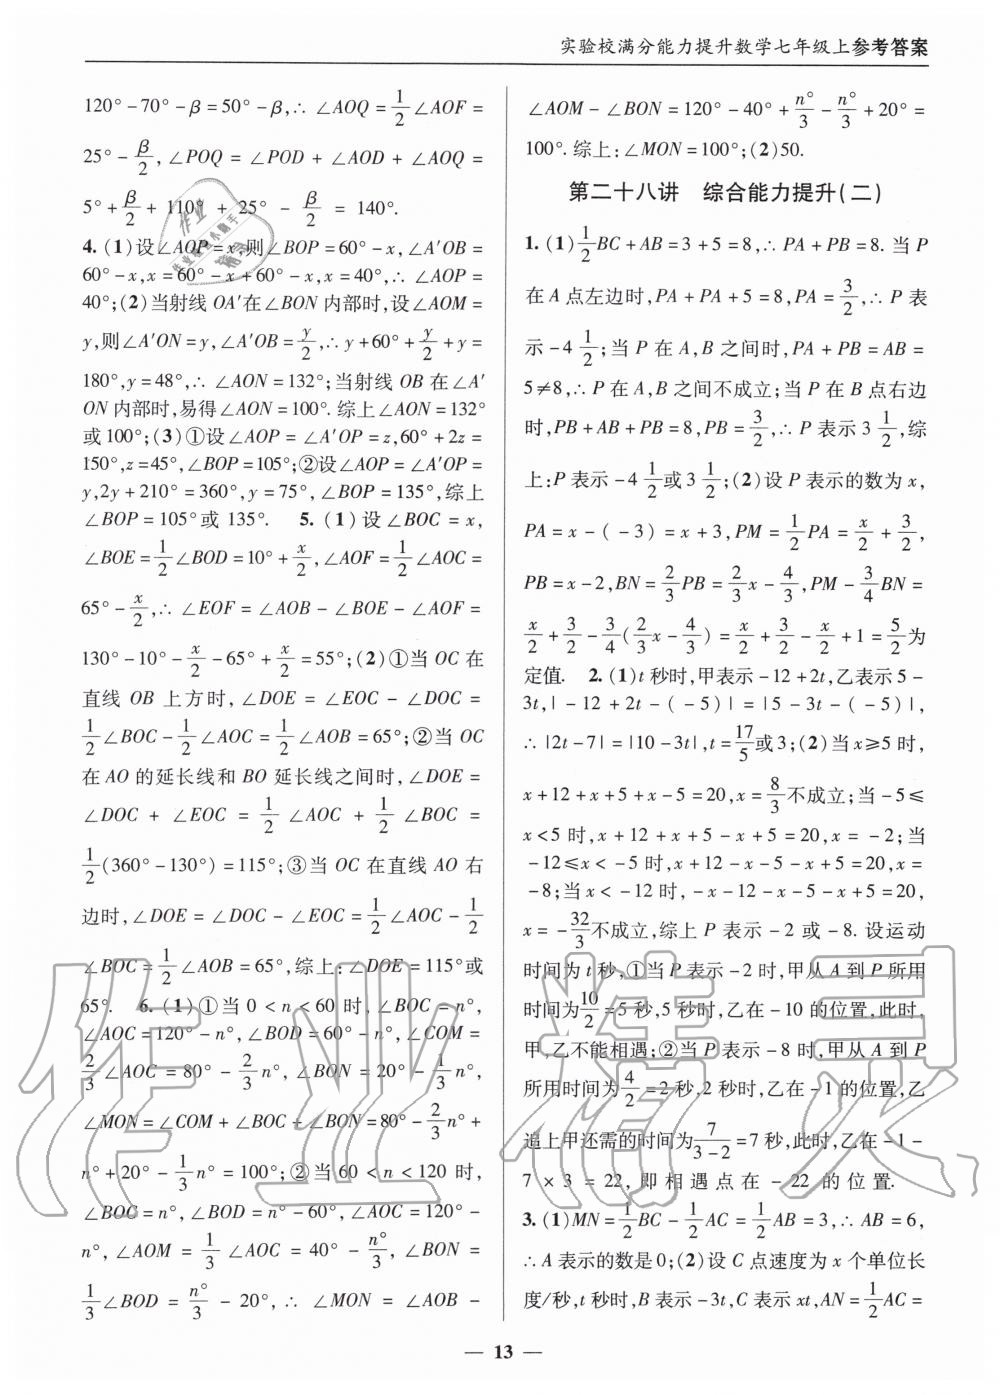 实验校满分能力提升数学七年级上参考答案
120°-70°-β=50°-β,∴ ∠AOQ=1/2∠AOF=
25°-β/2,∠POQ=∠POD+∠AOD+∠AOQ=
5°+β/2+110°+25°-β/2=140°.
4.(1)设∠AOP=x,则∠BOP=60°-x,∠A′OB=
60°-x,x=60°-x+60°-x,x=40°,∴ ∠AOP=
40°;(2)当射线OA′在∠BON内部时,设∠AOM=
y,则∠A′ON=y,∠A′OB=y/2,∴y+60°+y/2+y=
180°,y=48°,∴ ∠AON=132°;当射线OB在∠A′
ON内部时,易得∠AON=100°.综上∠AON=132°
或100°;(3)①设∠AOP=∠A′OP=z,60°+2z=
150°,z=45°,∠BOP=105°;②设∠AOP=∠A′OP=
y,2y+210°=360°,y=75°,∠BOP=135°,综上
∠BOP=105°或135°. 5.(1)设∠BOC=x,
∠BOE=1/2∠BOD=10°+x/2,∠AOF=1/2∠AOC=
65°-x/2,∴ ∠EOF=∠AOB-∠BOE-∠AOF=
130°-10°-x/2-65°+x/2=55°;(2)①当OC在
直线OB上方时,∠DOE=∠EOC-∠DOC=
1/2∠BOC-1/2∠AOC=1/2∠AOB=65°;②当OC
在AO的延长线和BO延长线之间时,∠DOE=
∠DOC+∠EOC=1/2∠AOC+1/2∠BOC=
1/2(360°-130°)=115°;③当OC在直线AO右
边时,∠DOE=∠DOC-∠EOC=1/2∠AOC-1/2
∠BOC=1/2∠AOB=65°,综上:∠DOE=115°或
65°. 6.(1)①当0<n<60时,∠BOC=n°,
∠AOC=120°-n°,∠BOD=60°-n°,∠COM=
2/3∠AOC=80°-2/3n°,∠BON=20°-1/3n°,
∠MON=∠COM+∠BOC+∠BON=80°-2/3n°+
n°+20°-1/3n°=100°;②当60<n<120时,
∠BOC=n°,∠BOD=n°-60°,∠AOC=120°-
n°,∠AOM=1/3∠AOC=40°-n°/3,∠BON=
1/3∠BOD=n°/3-20°,∴ ∠MON=∠AOB-
∠AOM-∠BON=120°-40°+n°/3-n°/3+20°=
100°.综上:∠MON=100°;(2)50.
第二十八讲 综合能力提升(二)
1.(1)1/2BC+AB=3+5=8,∴PA+PB=8.当P
在A点左边时,PA+PA+5=8,PA=3/2,∴P表
示-4 1/2;当P在A,B之间时,PA+PB=AB=
5≠8,∴P在A,B之间不成立;当P在B点右边
时,PB+AB+PB=8,PB=3/2,∴P表示3 1/2,综
上:P表示-4 1/2或3 1/2;(2)设P表示的数为x,
PA=x-(-3)=x+3,PM=1/2PA=x/2+3/2,
PB=x-2,BN=2/3PB=2/3x-4/3,PM-3/4BN=
x/2+3/2-3/4(2/3x-4/3)=x/2+3/2-x/2+1=5/2为
定值. 2.(1)t秒时,甲表示-12+2t,乙表示5-
3t,|-12+2t-(-5)|=|5-3t-(-5)|,
∴|2t-7|=|10-3t|,t=17/5或3;(2)当x≥5时,
x+12+x+5+x-5=20,x=8/3不成立;当-5≤
x<5时,x+12+x+5-x+5=20,x=-2;当
-12≤x<-5时,x+12-x-5-x+5=20,x=
-8;当x<-12时,-x-12-x-5-x+5=20,
x=-32/3不成立,综上P表示-2或-8.设运动
时间为t秒,①当P表示-2时,甲从A到P所用
时间为10/2=5秒,5秒时,乙在-10的位置,此时,
甲、乙不能相遇;②当P表示-8时,甲从A到P
所用时间为4/2=2秒,2秒时,乙在-1的位置,乙
追上甲还需的时间为7/(3-2)=7秒,此时,乙在-1-
7×3=22,即相遇点在-22的位置.
3.(1)MN=1/2BC-1/2AC=1/2AB=3,∴AB=6,
∴A表示的数是0;(2)设C点速度为x个单位长
度/秒,t秒时,B表示-3t,C表示xt,AN=1/2AC=
— 13 —
作业精灵